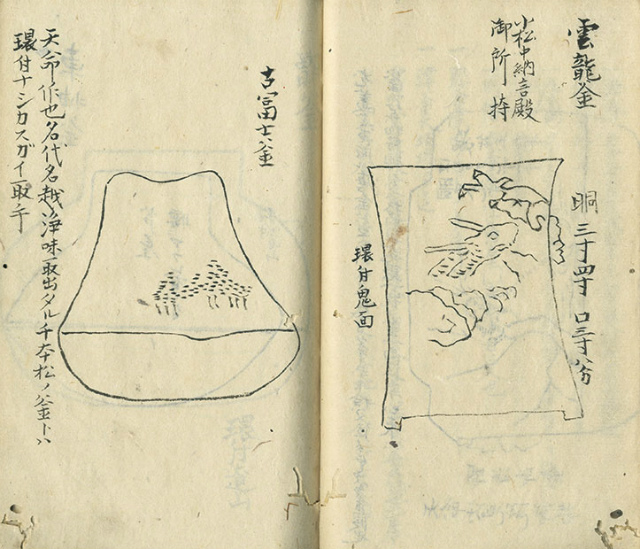 雲龍釜
小松中納言殿
御所持
胴三寸四寸 口三寸八分
環付鬼面
古冨士釜
天命作也名代名越浄味取出タル千本松ノ釜トハ
環付ナシカスガイ取手